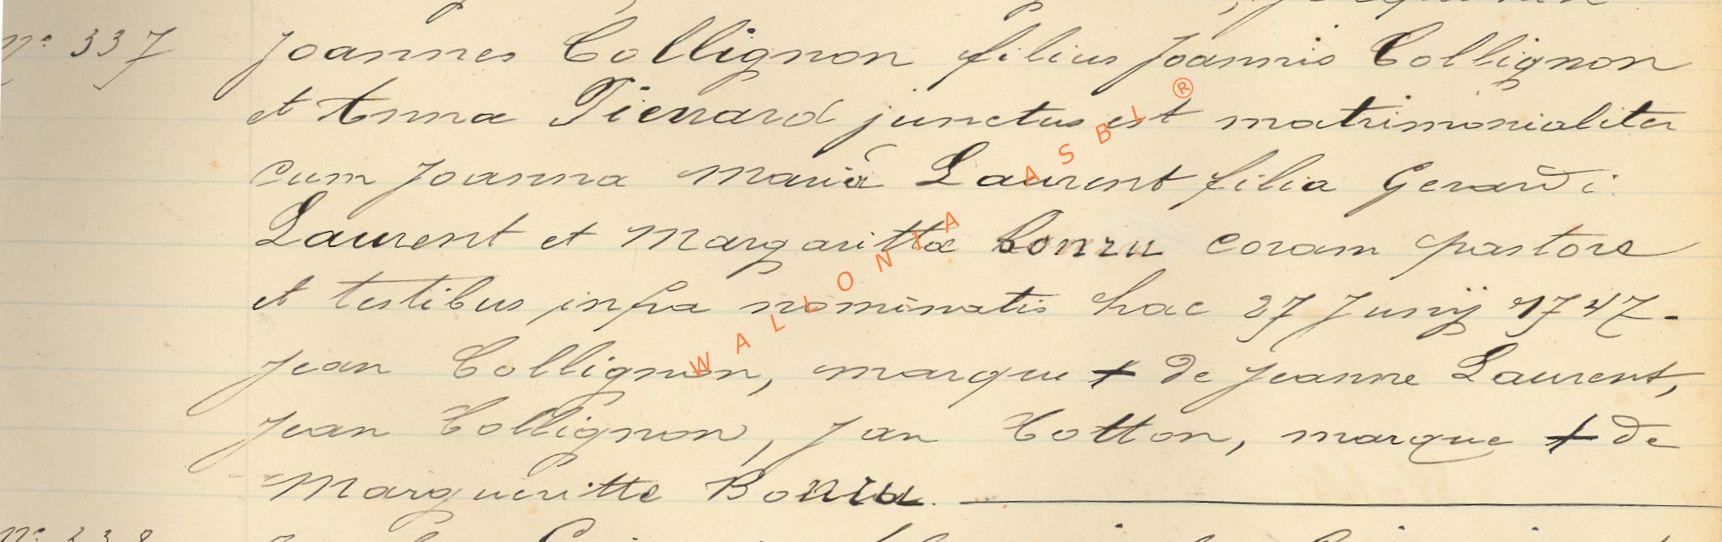 n° 337 Joannes Collignon filius Joannis Collignon
et Anna Pierrard junctus est matrimonialiter
cum Joanna Maria Laurent filia Gerardi
Laurent et Margarittæ Bonru coram pastore
et testibus infra nominatis hac 27 Junij 1747.
Jean Collignon, marque + de Jeanne Laurent,
Jean Collignon, Jan Cotton, marque + de
Margueritte Bonru.
WALLONIA ASBL ®